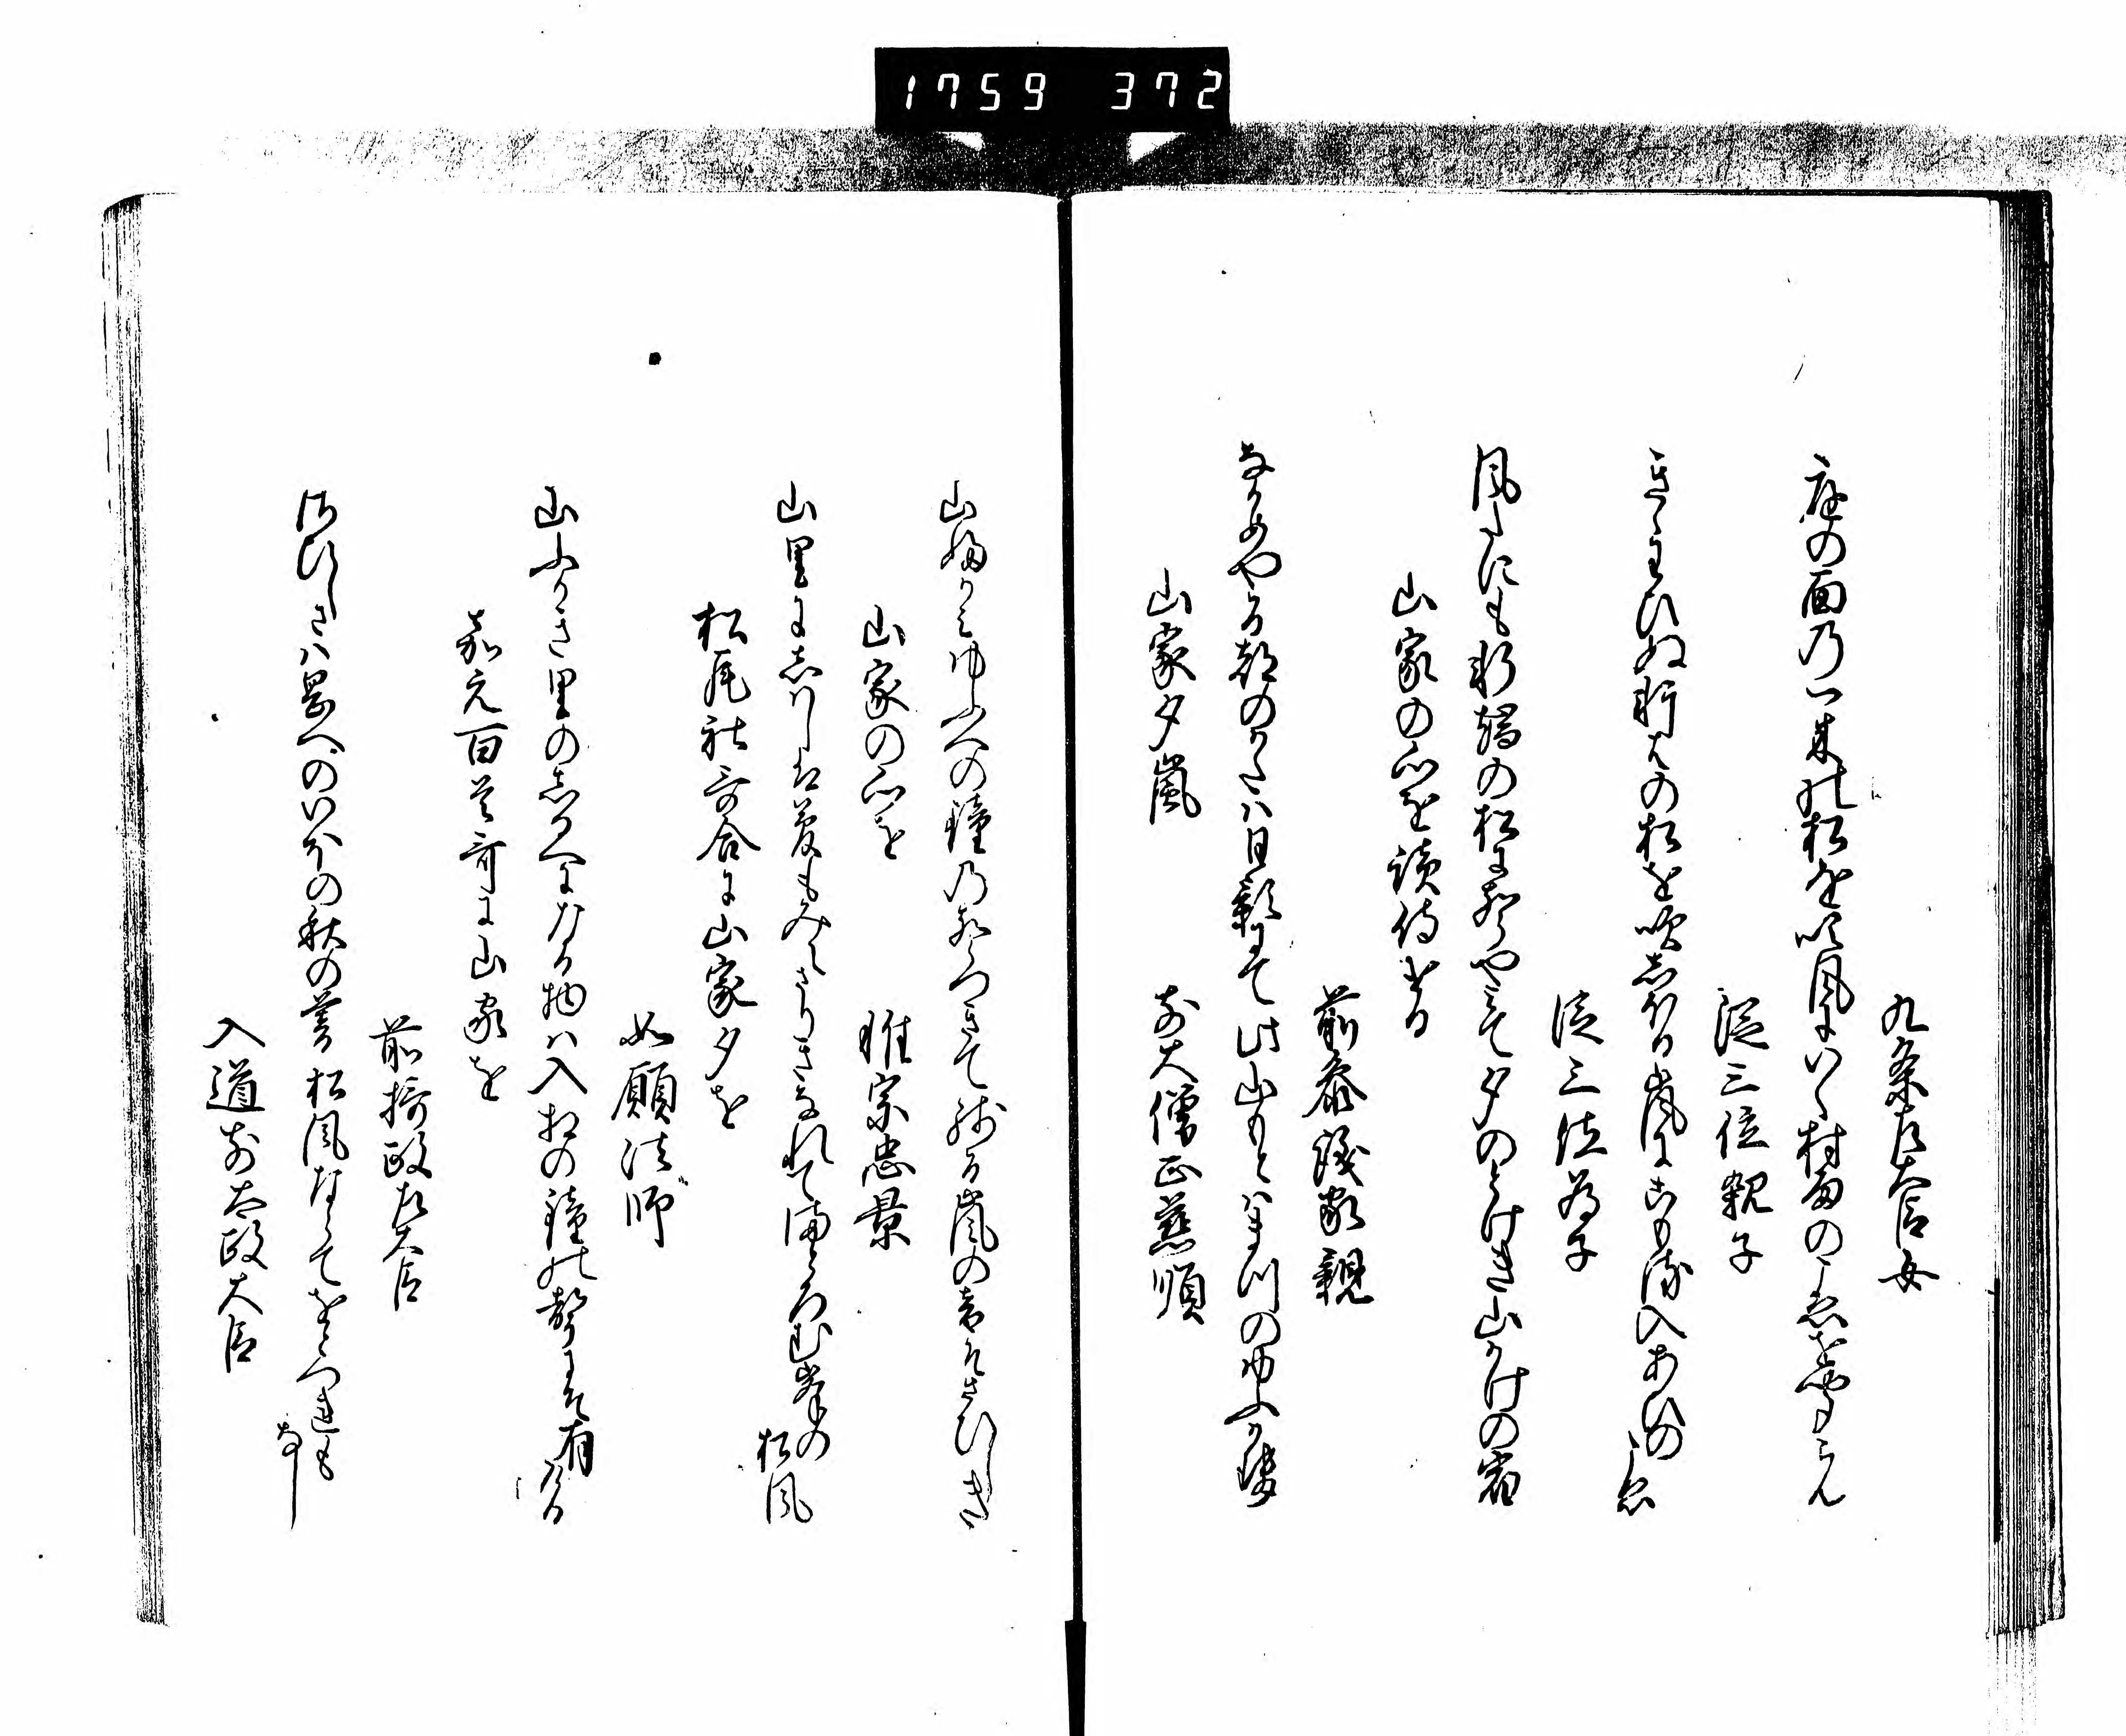 1759 372
九条左大臣女
庭の面の一本の松を吹風にいく村雨のこゑをきくらん
従三位親子
きゝわひぬ軒はの松を吹しほる嵐にこもる入あひのこゑ
従三位為子
風たにも軒端の松に声やみて夕のとけき山かけの宿
山家の心を読侍ける
前参議家親
なかめやる都のかたは日影にて此山もとはまつのゆふかせ
山家夕嵐
前大僧正慈順
山ふかみゆふへの鐘の声つきて残る嵐の音そさひしき
山家の心を
惟宗忠景
山里にしはしは夢もみえさりきなれてまとろむ峯の松風
松尾社哥合に山家夕を
如願法師
山ふかき里のしるへになる物は入相の鐘の声にそ有ける
嘉元百首哥に山家を
前摂政左大臣
さひしさは岡へのいほの秋の暮松風ならてをとつれもなし
入道前太政大臣